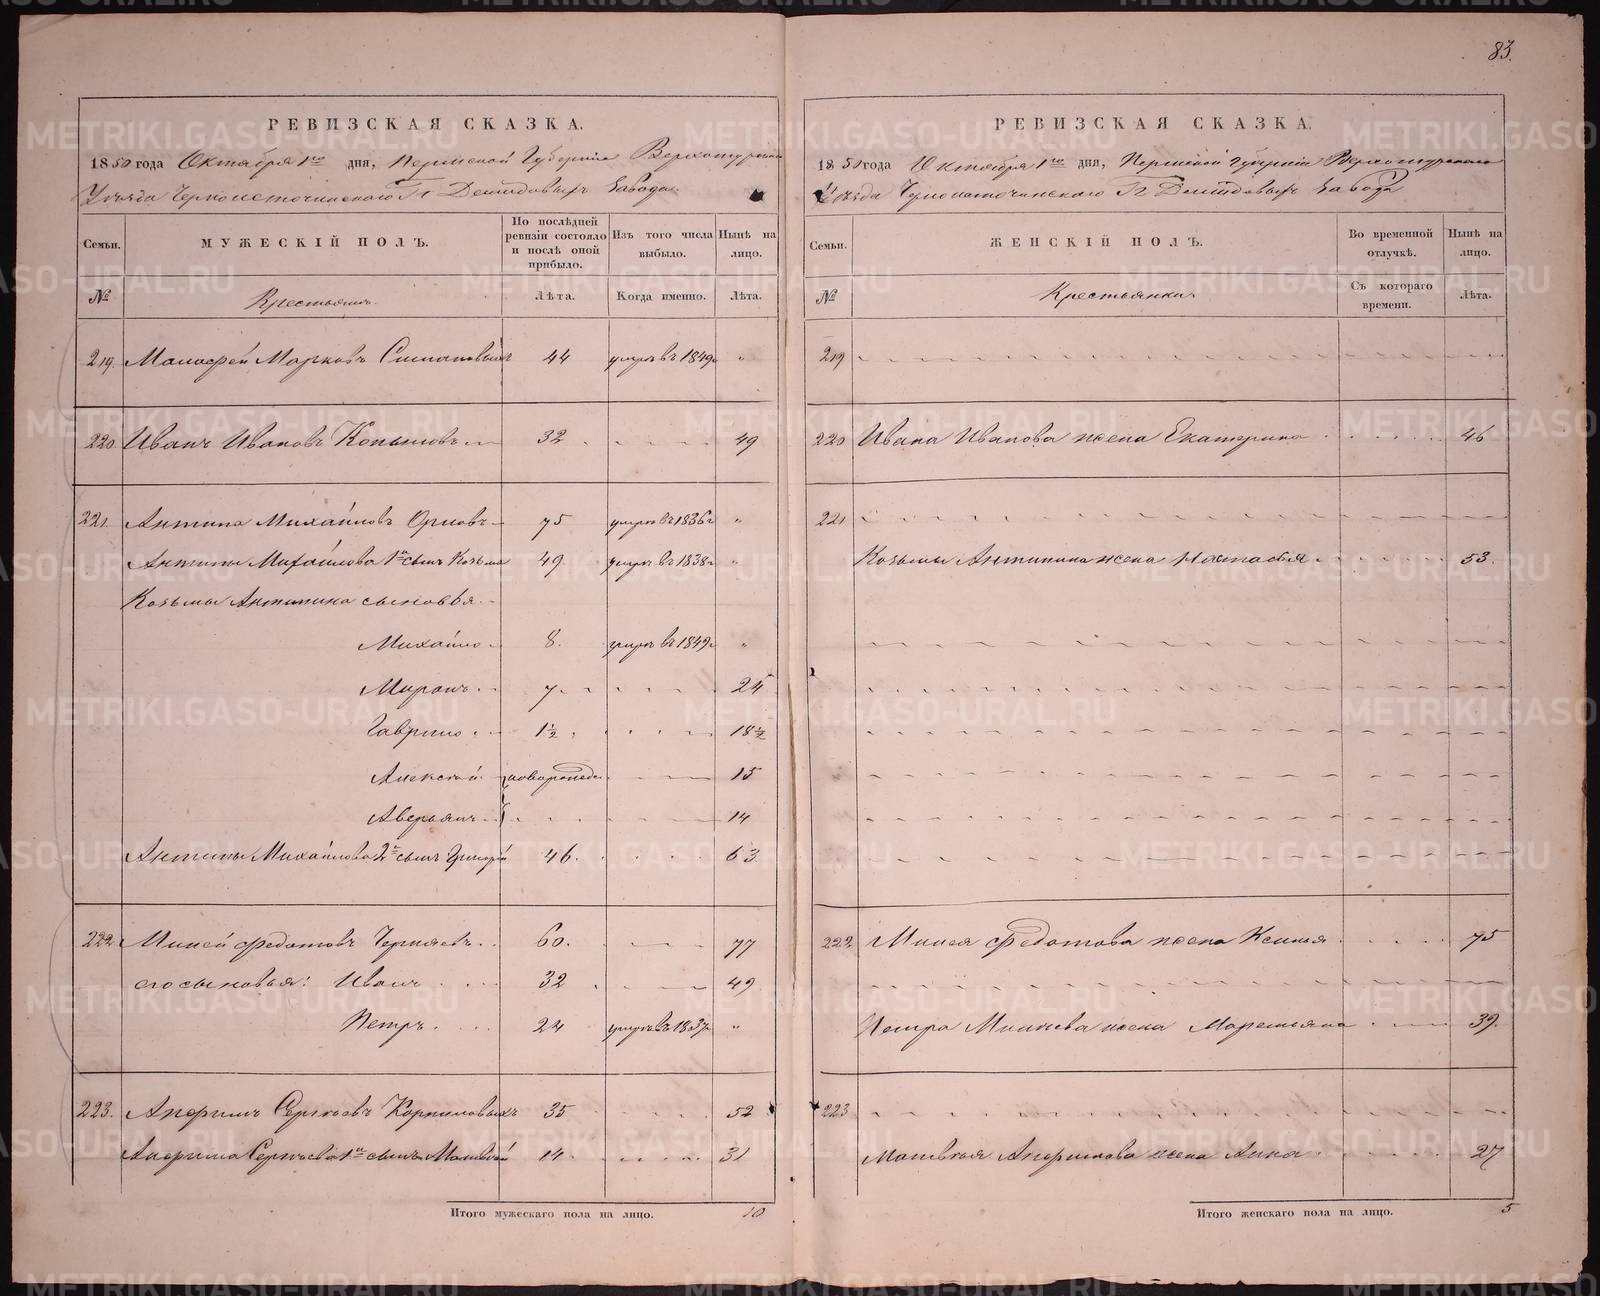 83.
РЕВИЗСКАЯ СКАЗКА.
1850 года Октября 1го дня, Пермской Губернiи Верхотурскаго
Уѣзда Черноисточинскаго Гг Демидовыхъ Завода.
Семьи.
МУЖЕСКIЙ ПОЛЪ.
По послѣдней ревизiи состояло и послѣ оной прибыло.
Изъ того числа выбыло.
Нынѣ на лицо.
№
Крестьянъ.
Лѣта.
Когда именно.
Лѣта.
219. Марковъ 44 умеръ въ 1849 г "
220 Иванъ Ивановъ Копыловъ 32 49
221. Антипа Михайловъ Орловъ 75 умеръ въ 1836 г "
Антипы Михайлова 1й сынъ Козьма 49 умеръ въ 1838 г "
Козьмы Антипина сыновья
Михайло 8. умеръ въ 1849 г "
Миронъ 7 24
Гаврило 1½ 18½
Алексѣй новорожд. 15
Аверьянъ 14
Антипы Михайлова 2й сынъ Григорiй 46. 63
222. Миней Федотовъ Черняевъ 60. 77
его сыновья: Иванъ 32 49
Петръ 24 умеръ въ 1837 г "
223. Анфимъ Сергѣевъ Корниловыхъ 35 52
Анфима Сергѣева 1й сынъ Матвѣй 14 31
Итого мужескаго пола на лицо. 10
РЕВИЗСКАЯ СКАЗКА.
1850 года Октября 1го дня, Пермской Губернiи Верхотурскаго
Уѣзда Черноисточинскаго Гг Демидовыхъ Завода
Семьи.
ЖЕНСКIЙ ПОЛЪ.
Во временной отлучкѣ.
Нынѣ на лицо.
№
Крестьянки
Съ котораго времени.
Лѣта.
219
220 Ивана Иванова жена Екатерина 46
221
Козьмы Антипина жена Настасья 53.
222 Минея Федотова жена Ксенья 75
Петра Минѣева жена Маремьяна 39.
223
Матвѣя Анфимова жена Анна 27
Итого женскаго пола на лицо. 5
METRIKI.GASO-URAL.RU